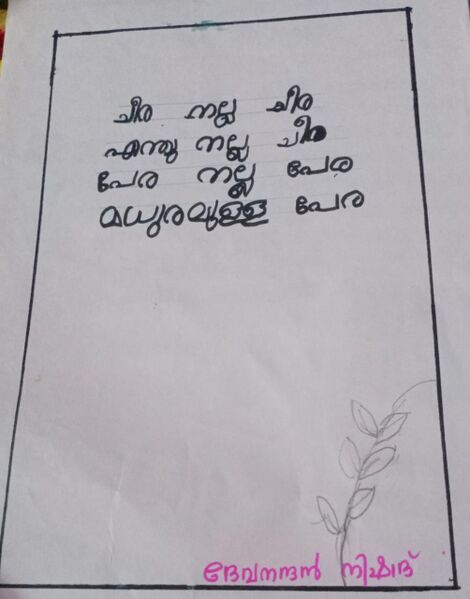 ചീര നല്ല ചീര
എന്തു നല്ല ചീര
പേര നല്ല പേര
മധുരമുള്ള പേര
ദേവനന്ദൻ നിഷാദ്